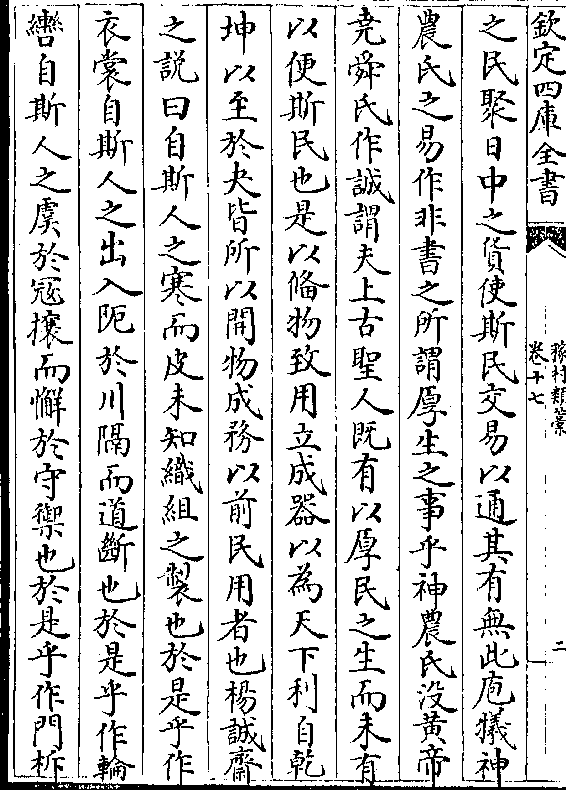 欽定四庫全書
稼村類藁
卷十七
二
之民聚日中之貨使斯民交易以通其有無此庖犧神
農氏之易作非書之所謂厚生之事乎神農氏沒黄帝
堯舜氏作誠謂夫上古聖人既有以厚民之生而未有
以便斯民也是以備物致用立成器以為天下利自乾
坤以至於夬皆所以開物成務以前民用者也楊誠齋
之説曰自斯人之寒而皮未知織組之製也於是乎作
衣裳自斯人之出入阨於川隔而道斷也於是乎作輪
轡自斯人之虞於冦攘而懈於守禦也於是乎作門柝